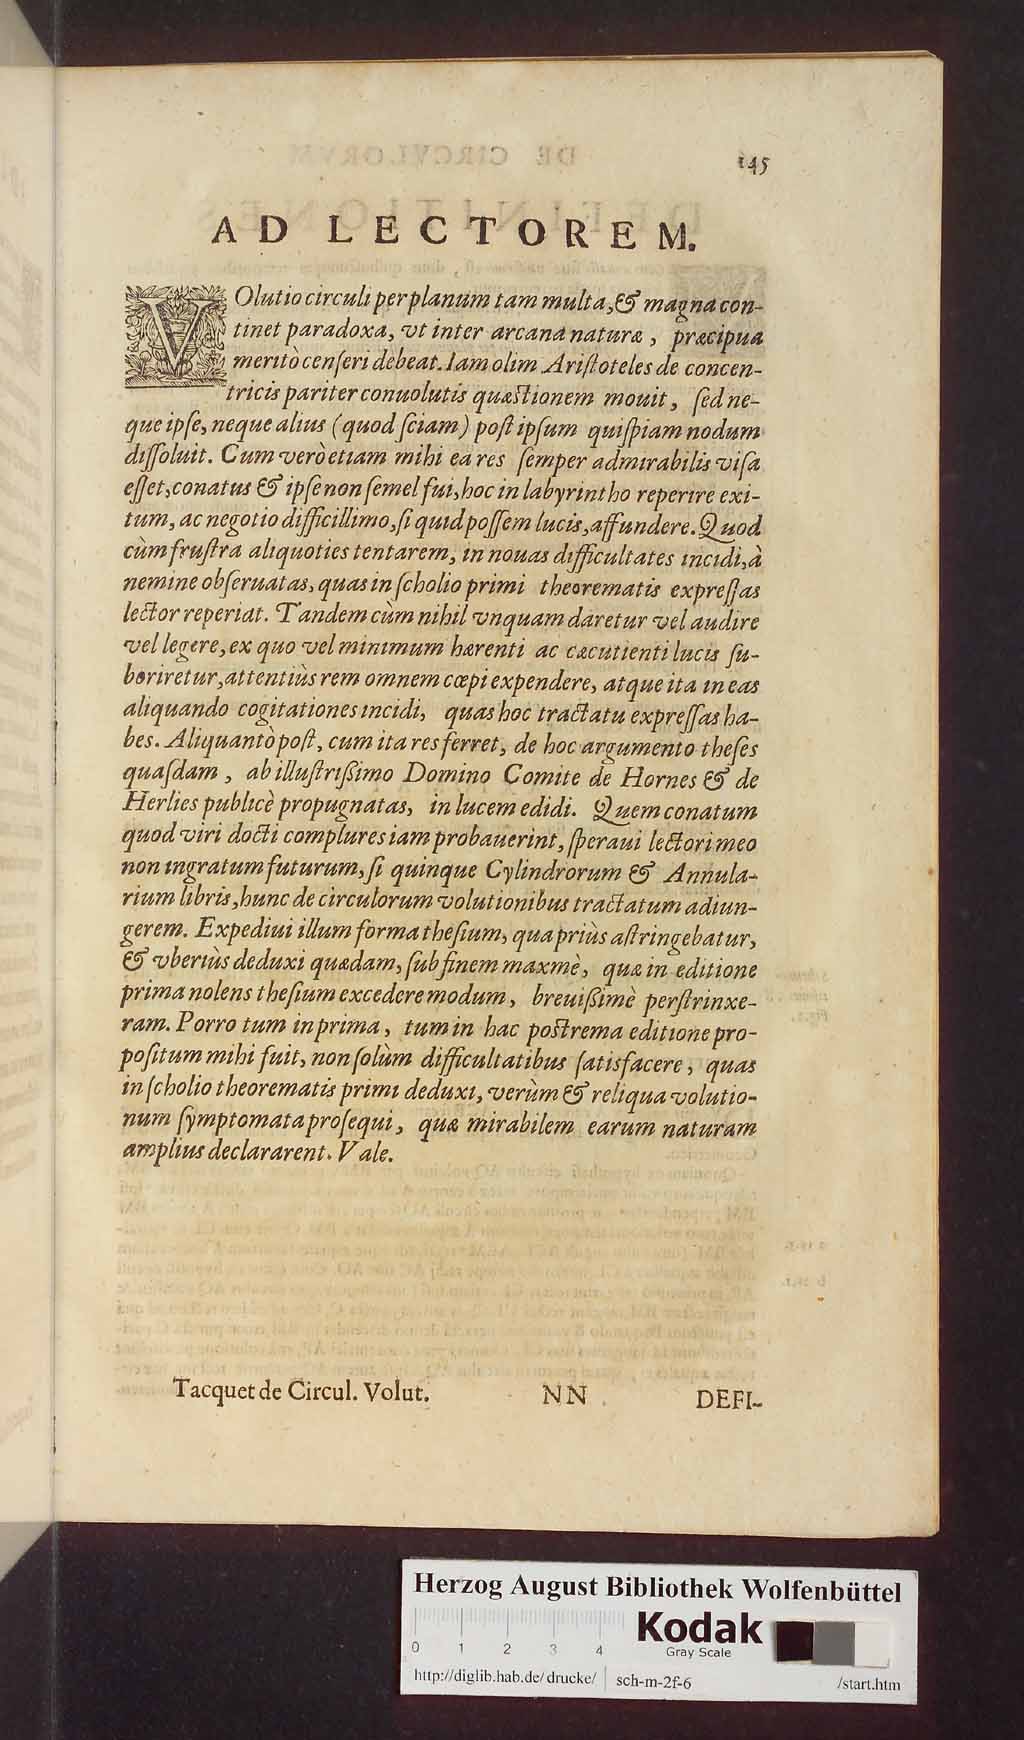 145
AD LECTOREM.
VOlutio circuli per planum tam multa, & magna con-
tinet paradoxa, vt inter arcana naturæ, præcipua
meritò censeri debeat. Iam olim Aristoteles de concen-
tricis pariter conuolutis quæstionem mouit, sed ne-
que ipse, neque alius (quod sciam) post ipsum quispiam nodum
dissoluit. Cum verò etiam mihi ea res semper admirabilis visa
esset, conatus & ipse non semel fui, hoc in labyrintho reperire exi-
tum, ac negotio difficillimo, si quid possem lucis, affundere. Quod
cùm frustra aliquoties tentarem, in nouas difficultates incidi, à
nemine obseruatas, quas in scholio primi theorematis expressas
lector reperiat. Tandem cùm nihil vnquam daretur vel audire
vel legere, ex quo vel minimum hærenti ac cæcutienti lucis su-
boriretur, attentiùs rem omnem cœpi expendere, atque ita in eas
aliquando cogitationes incidi, quas hoc tractatu expressas ha-
bes. Aliquantò post, cum ita res ferret, de hoc argumento theses
quasdam, ab illustrißimo Domino Comite de Hornes & de
Herlies publicè propugnatas, in lucem edidi. Quem conatum
quod viri docti complures iam probauerint, speraui lectori meo
non ingratum futurum, si quinque Cylindrorum & Annula-
rium libris, hunc de circulorum volutionibus tractatum adiun-
gerem. Expediui illum forma thesium, qua priùs astringebatur,
& vberiùs deduxi quædam, sub finem maxmè, quæ in editione
prima nolens thesium excedere modum, breuißimè perstrinxe-
ram. Porro tum in prima, tum in hac postrema editione pro-
positum mihi fuit, non solùm difficultatibus satisfacere, quas
in scholio theorematis primi deduxi, verùm & reliqua volutio-
num symptomata prosequi, quæ mirabilem earum naturam
amplius declararent. Vale.
Tacquet de Circul. Volut. NN DEFI-
Herzog August Bibliothek Wolfenbüttel
0 1 2 3 4
Kodak
Gray Scale
http://diglib.hab.de/drucke/ sch-m-2f-6 /start.htm